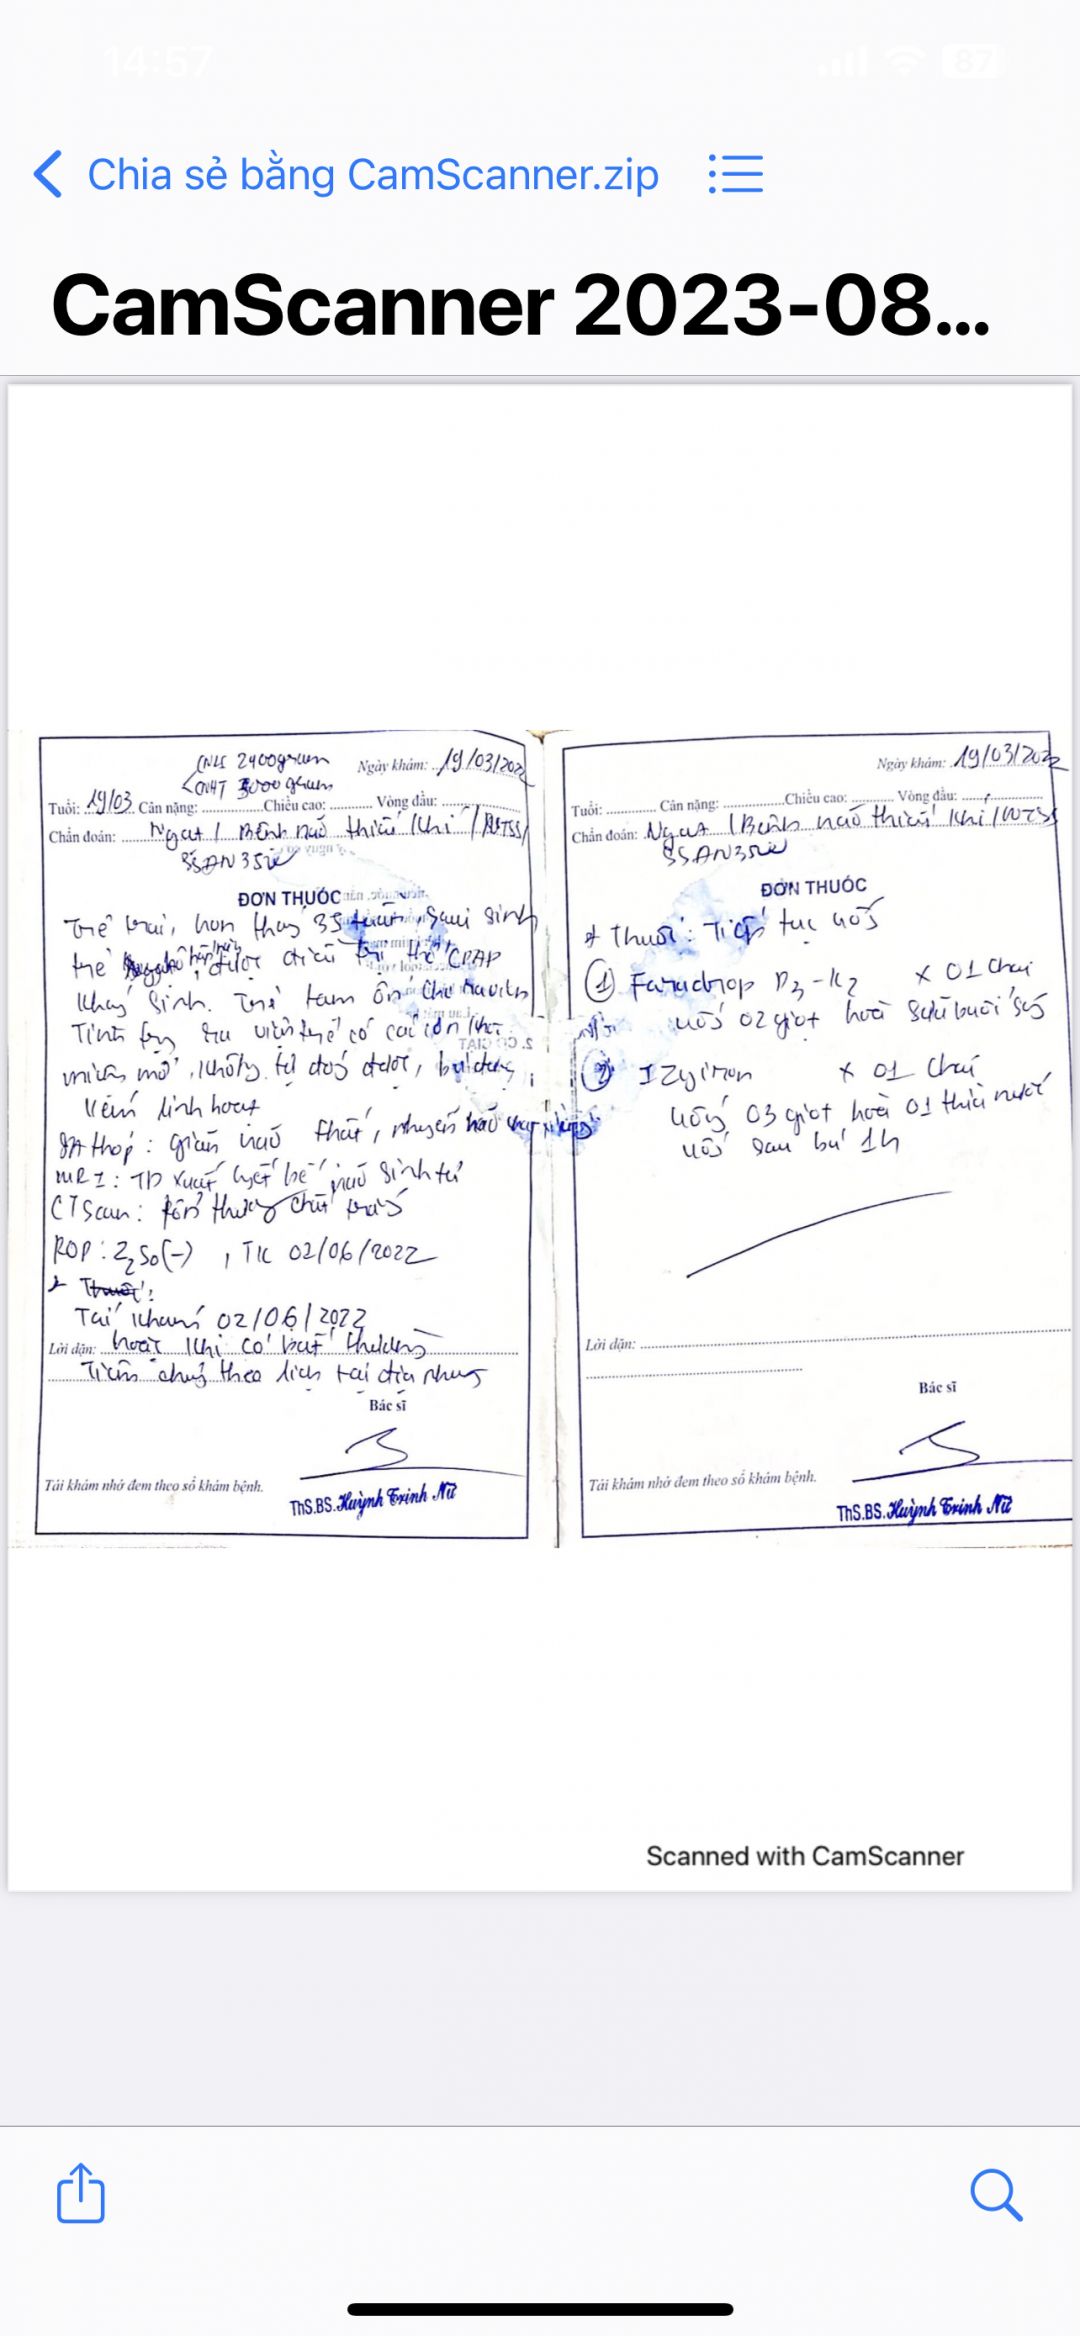 14:57
87
Chia sẻ bằng CamScanner.zip
CamScanner 2023-08...
CNLS 2400gram
CNHT 3000 gram
Ngày khám: 19/03/2022
Tuổi: 19/03 Cân nặng: Chiều cao: Vòng đầu:
Chẩn đoán: Ngạt / Bệnh não thiếu khí /
ĐƠN THUỐC
Trẻ trai, non tháng 35 tuần, sau sinh
trẻ được điều trị thở CPAP
kháng sinh. Trẻ tạm ổn cho
viện trẻ có
không tự được,
kém linh hoạt
SA thóp: giãn não thất, nhuyễn não
MRI: TD xuất huyết não
CTScan: tổn thương chất trắng
ROP: Z2S0(-), TK 02/06/2022
* Thuốc:
Tái khám 02/06/2022
Lời dặn: hoặc khi có bất thường
Tiêm chủng theo lịch tại địa phương
Bác sĩ
Tái khám nhớ đem theo sổ khám bệnh.
ThS.BS. Huỳnh Trinh Nữ
Ngày khám: 19/03/2022
Tuổi: Cân nặng: Chiều cao: Vòng đầu:
Chẩn đoán: Ngạt / Bệnh não thiếu khí /
ĐƠN THUỐC
* Thuốc: Tiếp tục uống
① D3-K2 x 01 chai
uống 02 giọt buổi sáng
② Izyiron x 01 chai
uống 03 giọt hoà 01 thìa nước
uống sau bú 1h
Lời dặn:
Bác sĩ
Tái khám nhớ đem theo sổ khám bệnh.
ThS.BS. Huỳnh Trinh Nữ
Scanned with CamScanner